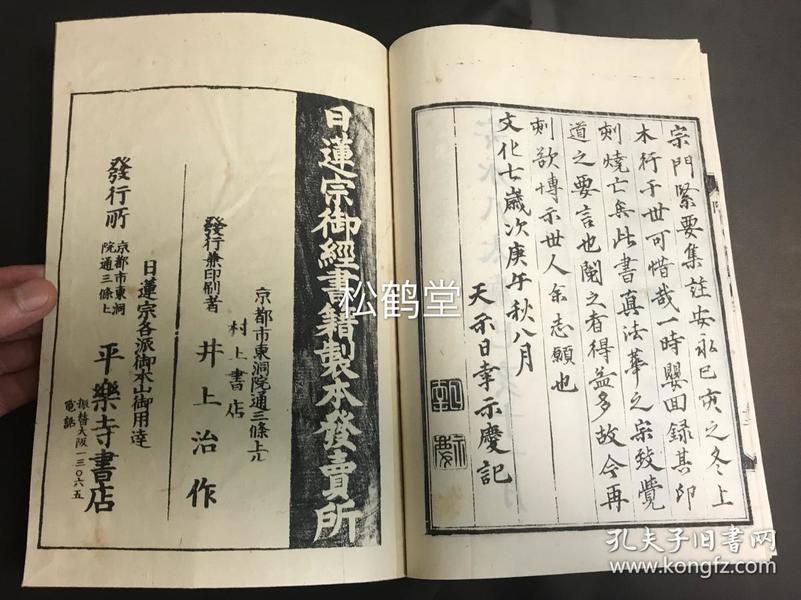 宗門緊要集註安永已亥之冬上
木行于世可惜哉一時嬰回録其印
刻燒亡矣此書真法華之宗致覺
道之要言也閲之者得益多故今再
刻欲博示世人余志願也
文化七歳次庚午秋八月
天示日幸示慶記
日蓮宗御經書籍製本發賣所
京都市東洞院通三條上ル
村上書店
發行兼印刷者
井上治作
日蓮宗各派御本山御用達
發行所
京都市東洞
院通三條上
平樂寺書店
振替大阪一三〇六五
電話
松鹤堂
孔夫子旧书网
www.kongfz.com